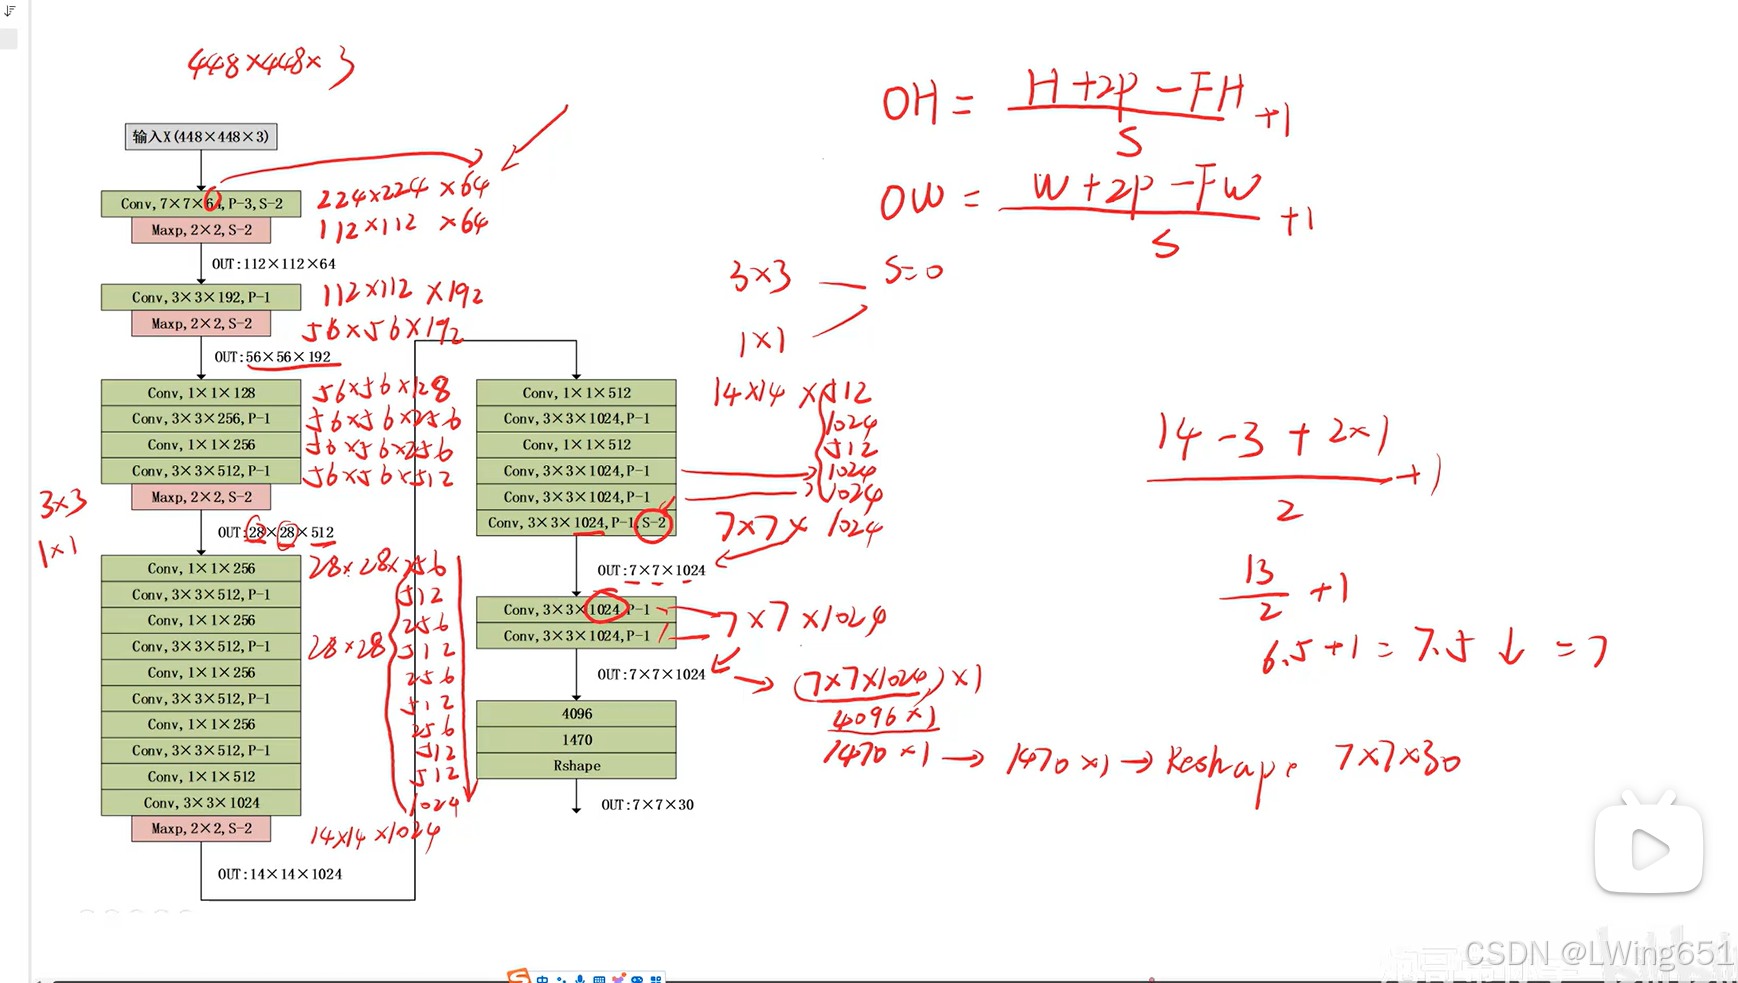 448×448×3
输入X(448×448×3)
Conv,7×7×64,P-3,S-2
224×224×64
Maxp,2×2,S-2
112×112×64
OUT:112×112×64
Conv,3×3×192,P-1
112×112×192
Maxp,2×2,S-2
56×56×192
OUT:56×56×192
Conv,1×1×128
56×56×128
Conv,3×3×256,P-1
56×56×256
Conv,1×1×256
56×56×256
Conv,3×3×512,P-1
56×56×512
Maxp,2×2,S-2
3×3
1×1
OUT:28×28×512
Conv,1×1×256
28×28×256
Conv,3×3×512,P-1
512
Conv,1×1×256
256
Conv,3×3×512,P-1
28×28
512
Conv,1×1×256
256
Conv,3×3×512,P-1
512
Conv,1×1×256
256
Conv,3×3×512,P-1
512
Conv,1×1×512
512
Conv,3×3×1024
1024
Maxp,2×2,S-2
14×14×1024
OUT:14×14×1024
Conv,1×1×512
14×14×512
Conv,3×3×1024,P-1
1024
Conv,1×1×512
512
Conv,3×3×1024,P-1
1024
Conv,3×3×1024,P-1
1024
Conv,3×3×1024,P-1,S-2
7×7×1024
OUT:7×7×1024
Conv,3×3×1024,P-1
Conv,3×3×1024,P-1
7×7×1024
OUT:7×7×1024
(7×7×1024)×1
4096
4096×1
1470
1470×1→1470×1→Reshape 7×7×30
Rshape
OUT:7×7×30
OH=
H+2P-FH
S
+1
OW=
W+2P-FW
S
+1
3×3
1×1
S=0
14-3+2×1
2
+1
13
2
+1
6.5+1=7.5↓=7
中
CSDN @LWing651